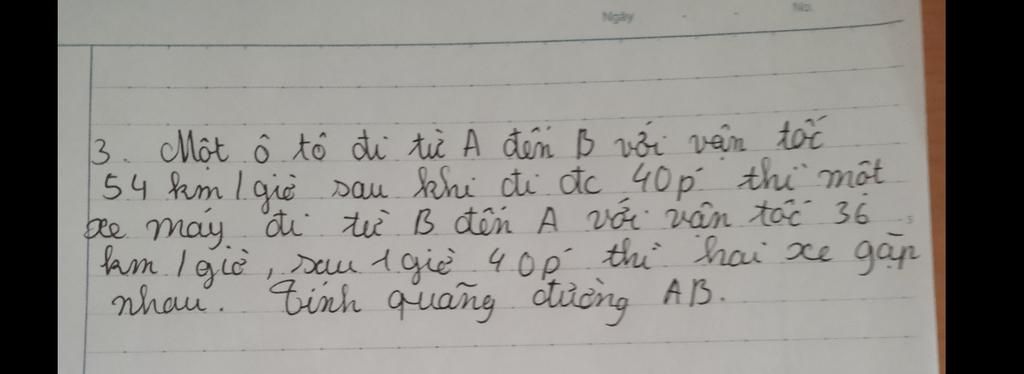 Ngày
No.
3. Một ô tô đi từ A đến B với vận tốc
54 km/giờ sau khi đi đc 40p thì một
xe máy đi từ B đến A với vận tốc 36
km/giờ, sau 1 giờ 40p thì hai xe gặp
nhau. Tính quãng đường AB.